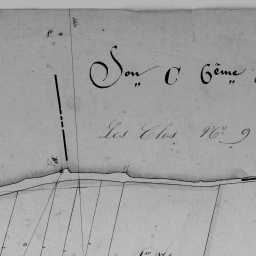 Son C 6ème
Les Clos N° 9